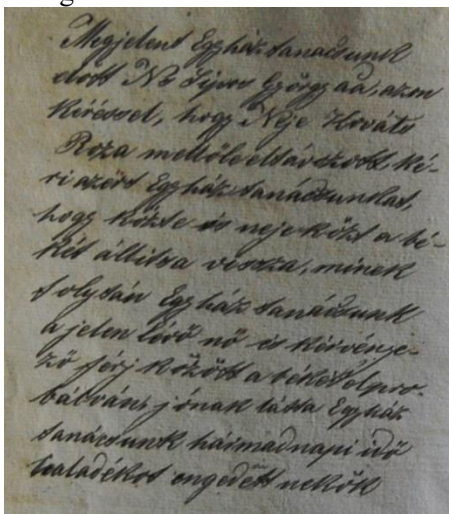 Megjelent Egyház tanácsunk
előtt Ns Sipos György az, azon
kéréssel, hogy Neje Horváts
Roza mellőle eltávozott, ké-
ri azért Egyház tanácsunkat,
hogy közte és neje közt a bé-
két állitsa vissza, minek
folytán Egyház tanácsunk
a jelen lévő nő és kérvénye-
ző férj között a békét elpro-
bálván, jónak látta Egyház
tanácsunk hármadnapi idő
haladékot engedett nekök